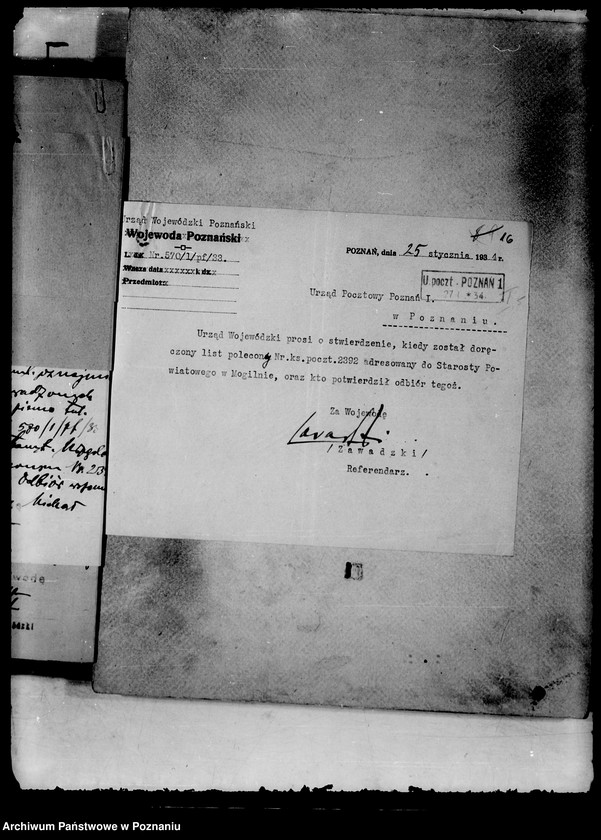 Urząd Wojewódzki Poznański
Wojewoda Poznański
L. Nr.570/1/pf/33.
Wasza data xxxxxxx k dz x
Przedmiot:
16
POZNAŃ, dnia 25 stycznia 1934 r.
U. poczt. POZNAŃ 1
34
Urząd Pocztowy Poznań I.
w Poznaniu.
Urząd Wojewódzki prosi o stwierdzenie, kiedy został dorę-
czony list polecony Nr.ks.poczt.2392 adresowany do Starosty Po-
wiatowego w Mogilnie, oraz kto potwierdził odbiór tegoż.
Za Wojewodę
/Zawadzki/
Referendarz.
pismo tut.
Odbiór
Michał
Archiwum Państwowe w Poznaniu